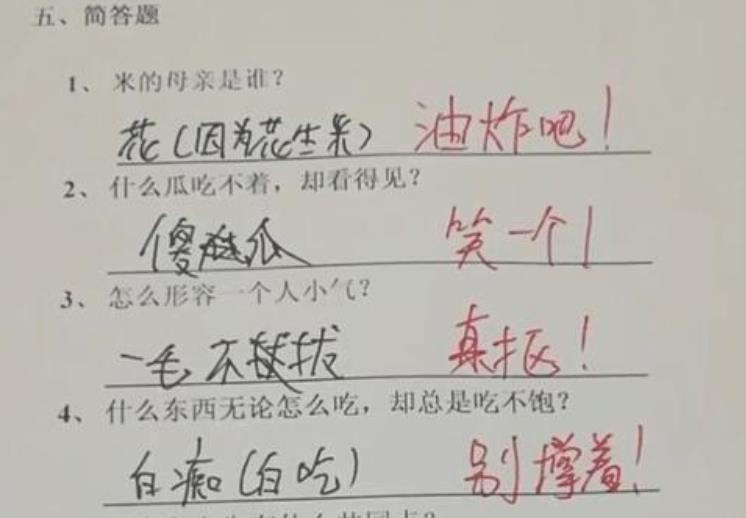 五、简答题
1、米的母亲是谁？
花（因为花生米） 油炸吧！
2、什么瓜吃不着，却看得见？
傻瓜 笑一个！
3、怎么形容一个人小气？
一毛不拔 真抠！
4、什么东西无论怎么吃，却总是吃不饱？
白痴（白吃） 别撑着！